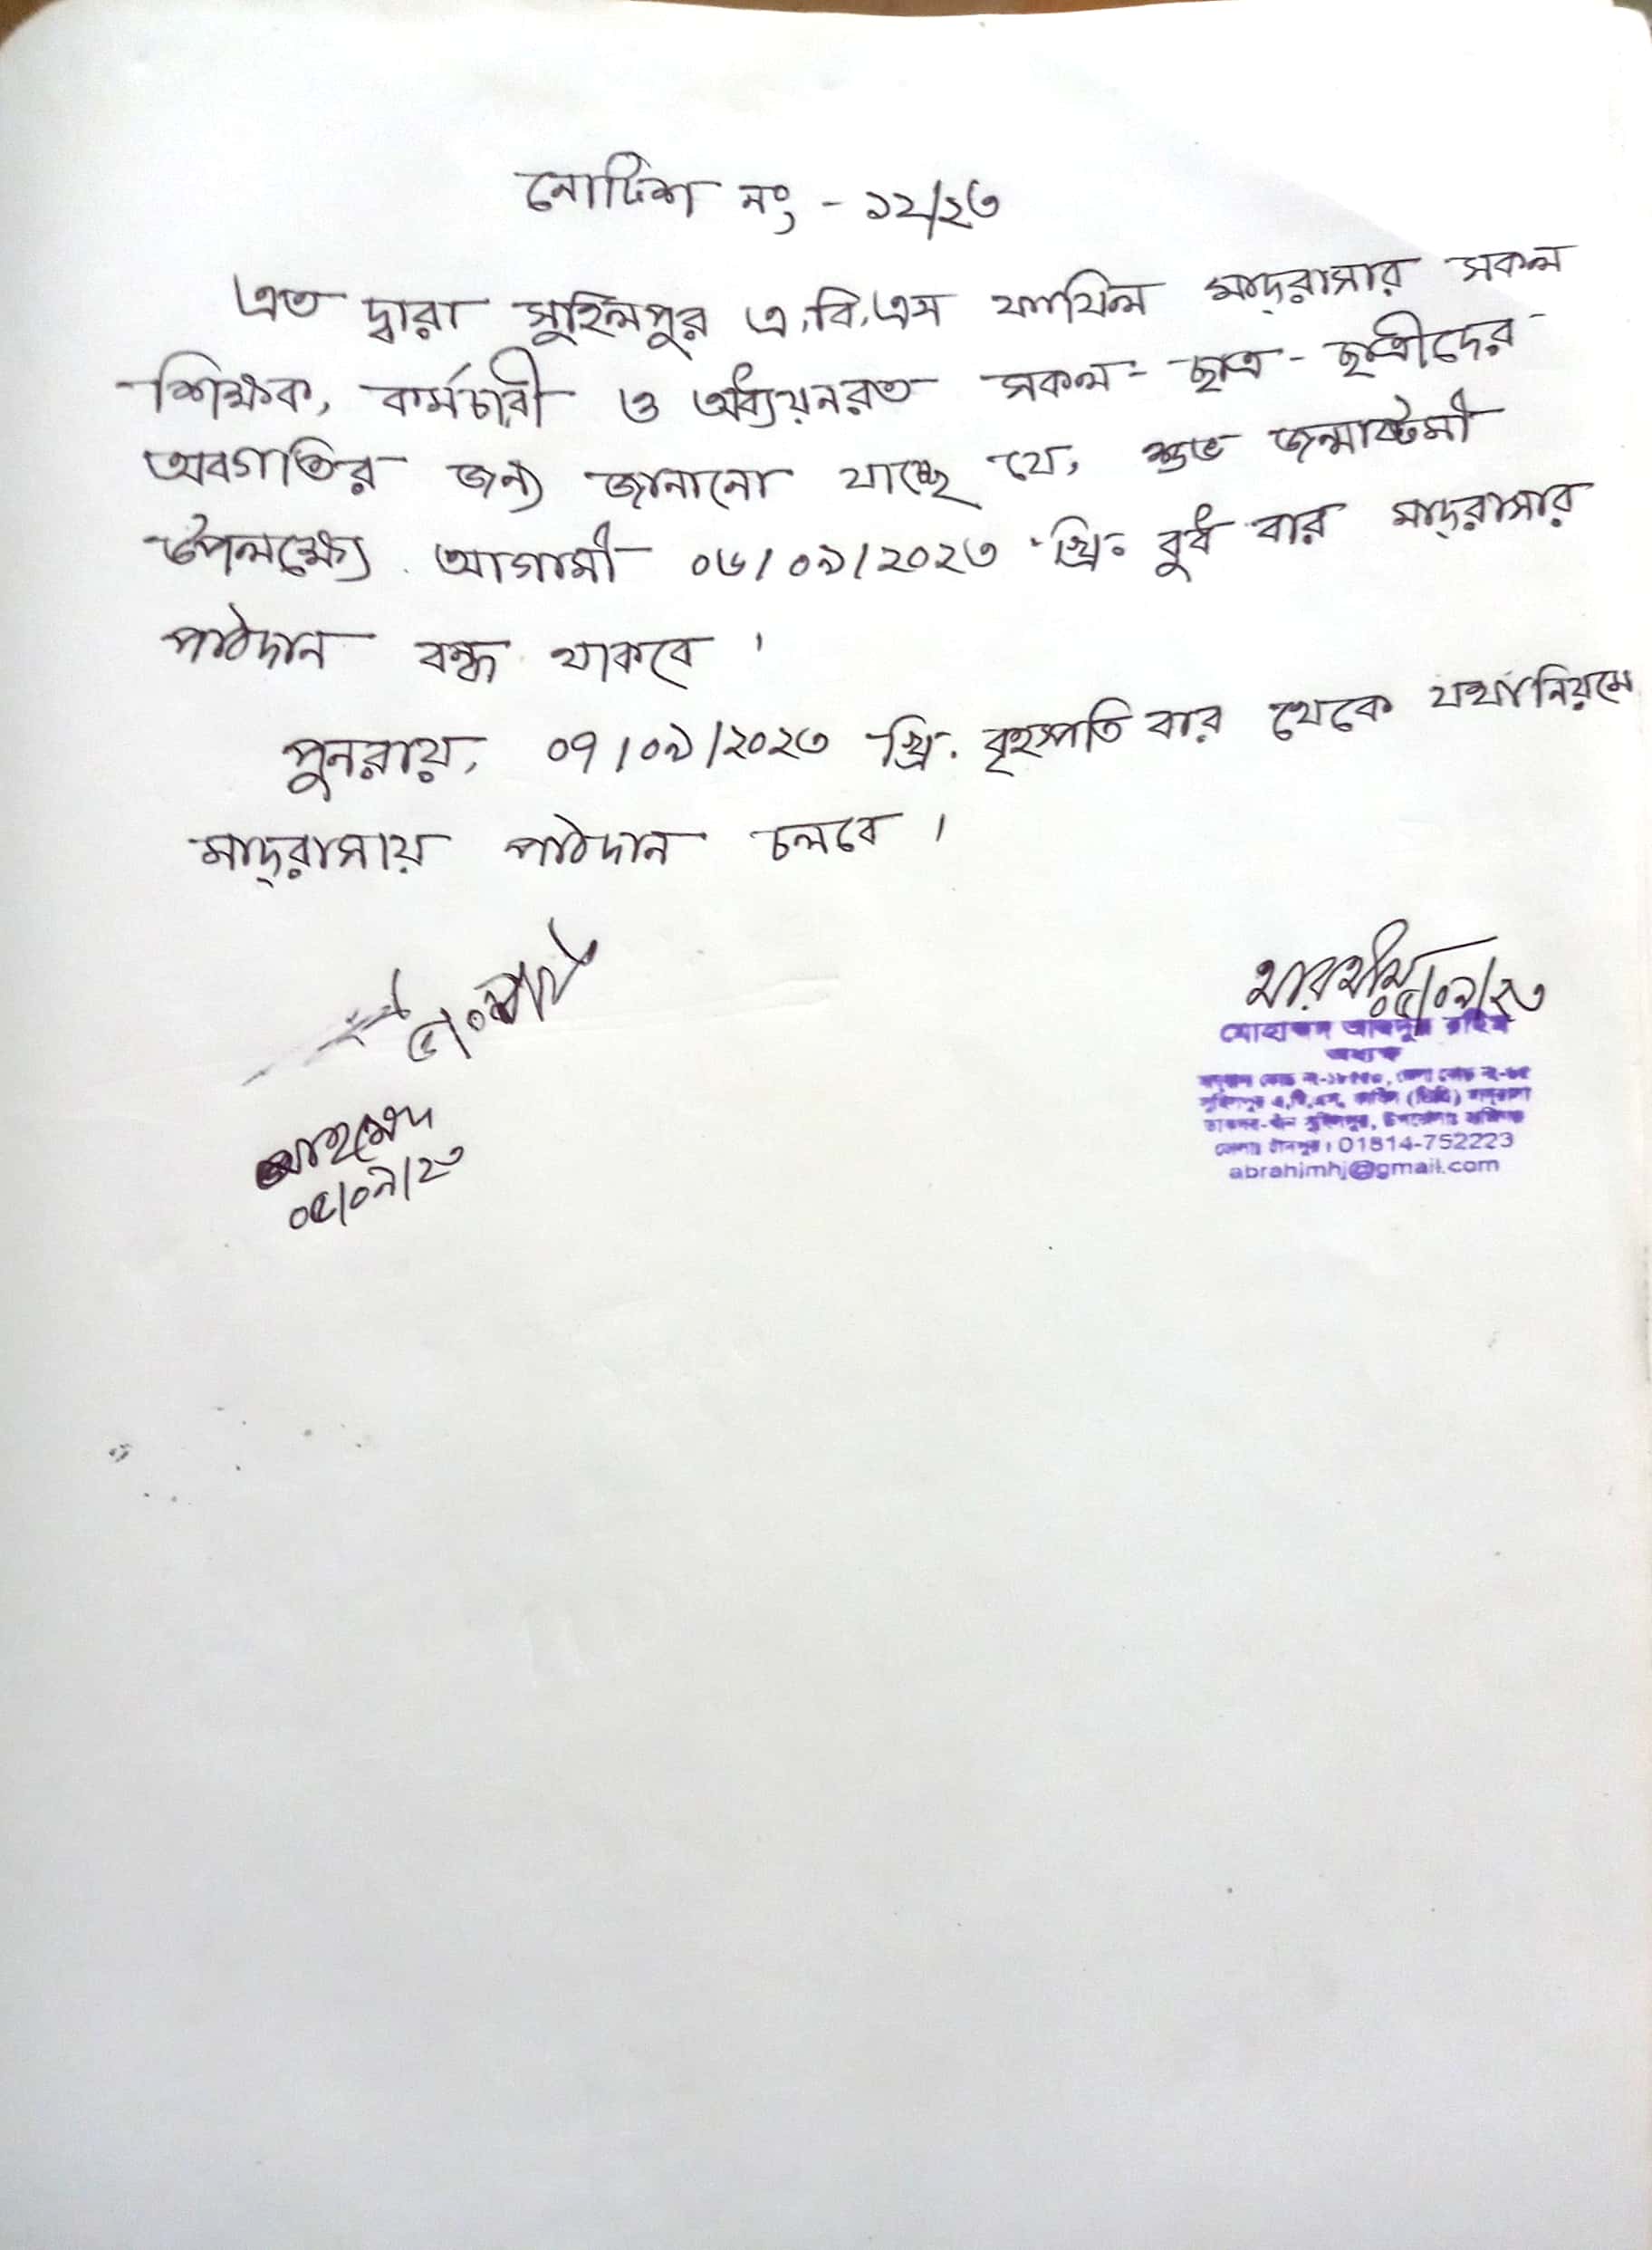 নোটিশ নং - ১২/২৩
এত দ্বারা সুহিলপুর এ.বি.এস ফাযিল মাদ্রাসার সকল
শিক্ষক, কর্মচারী ও অধ্যয়নরত সকল - ছাত্র - ছাত্রীদের
অবগতির জন্য জানানো যাচ্ছে যে, শুভ জন্মাষ্টমী
উপলক্ষ্যে আগামী ০৬/০৯/২০২৩ খ্রি: বুধ বার মাদ্রাসার
পাঠদান বন্ধ থাকবে ।
পুনরায়, ০৭/০৯/২০২৩ খ্রি. বৃহস্পতি বার থেকে যথানিয়মে
মাদ্রাসায় পাঠদান চলবে ।
০৫/০৯/২৩
মোহাম্মদ আবদুর রহিম
অধ্যক্ষ
সুহিলপুর এ,বি,এস, ফাযিল (ডিগ্রি) মাদ্রাসা
জেলাঃ চাঁদপুর। 01814-752223
abrahimhj@gmail.com
আহমেদ
০৫/০৯/২৩